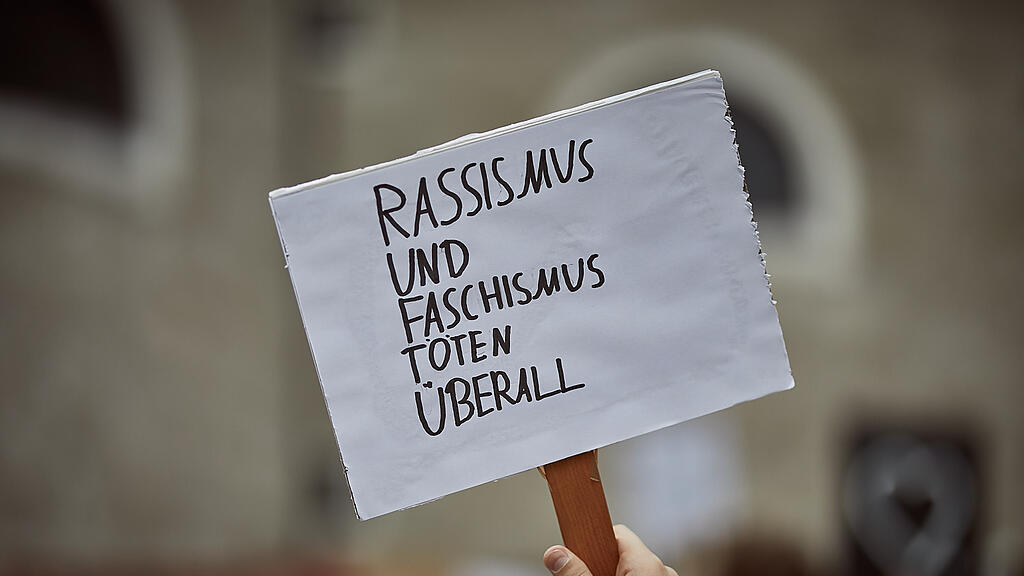 RASSISMUS
UND
FASCHISMUS
TÖTEN
ÜBERALL